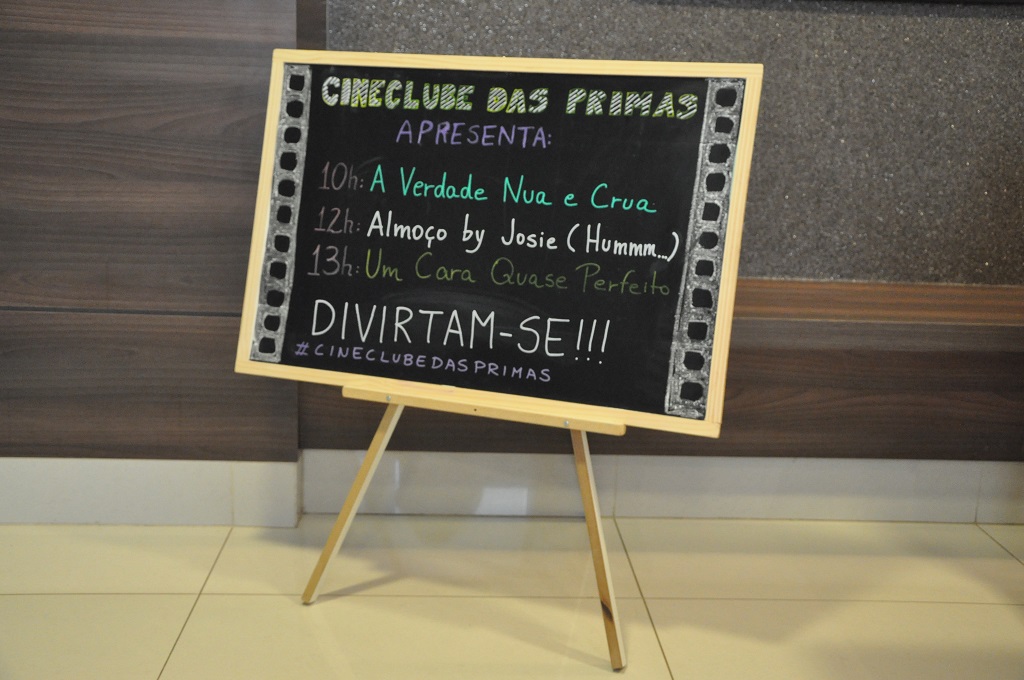 CINECLUBE DAS PRIMAS
APRESENTA:
10h: A Verdade Nua e Crua
12h: Almoço by Josie (Hummm...)
13h: Um Cara Quase Perfeito
DIVIRTAM-SE!!!
#CINECLUBEDASPRIMAS